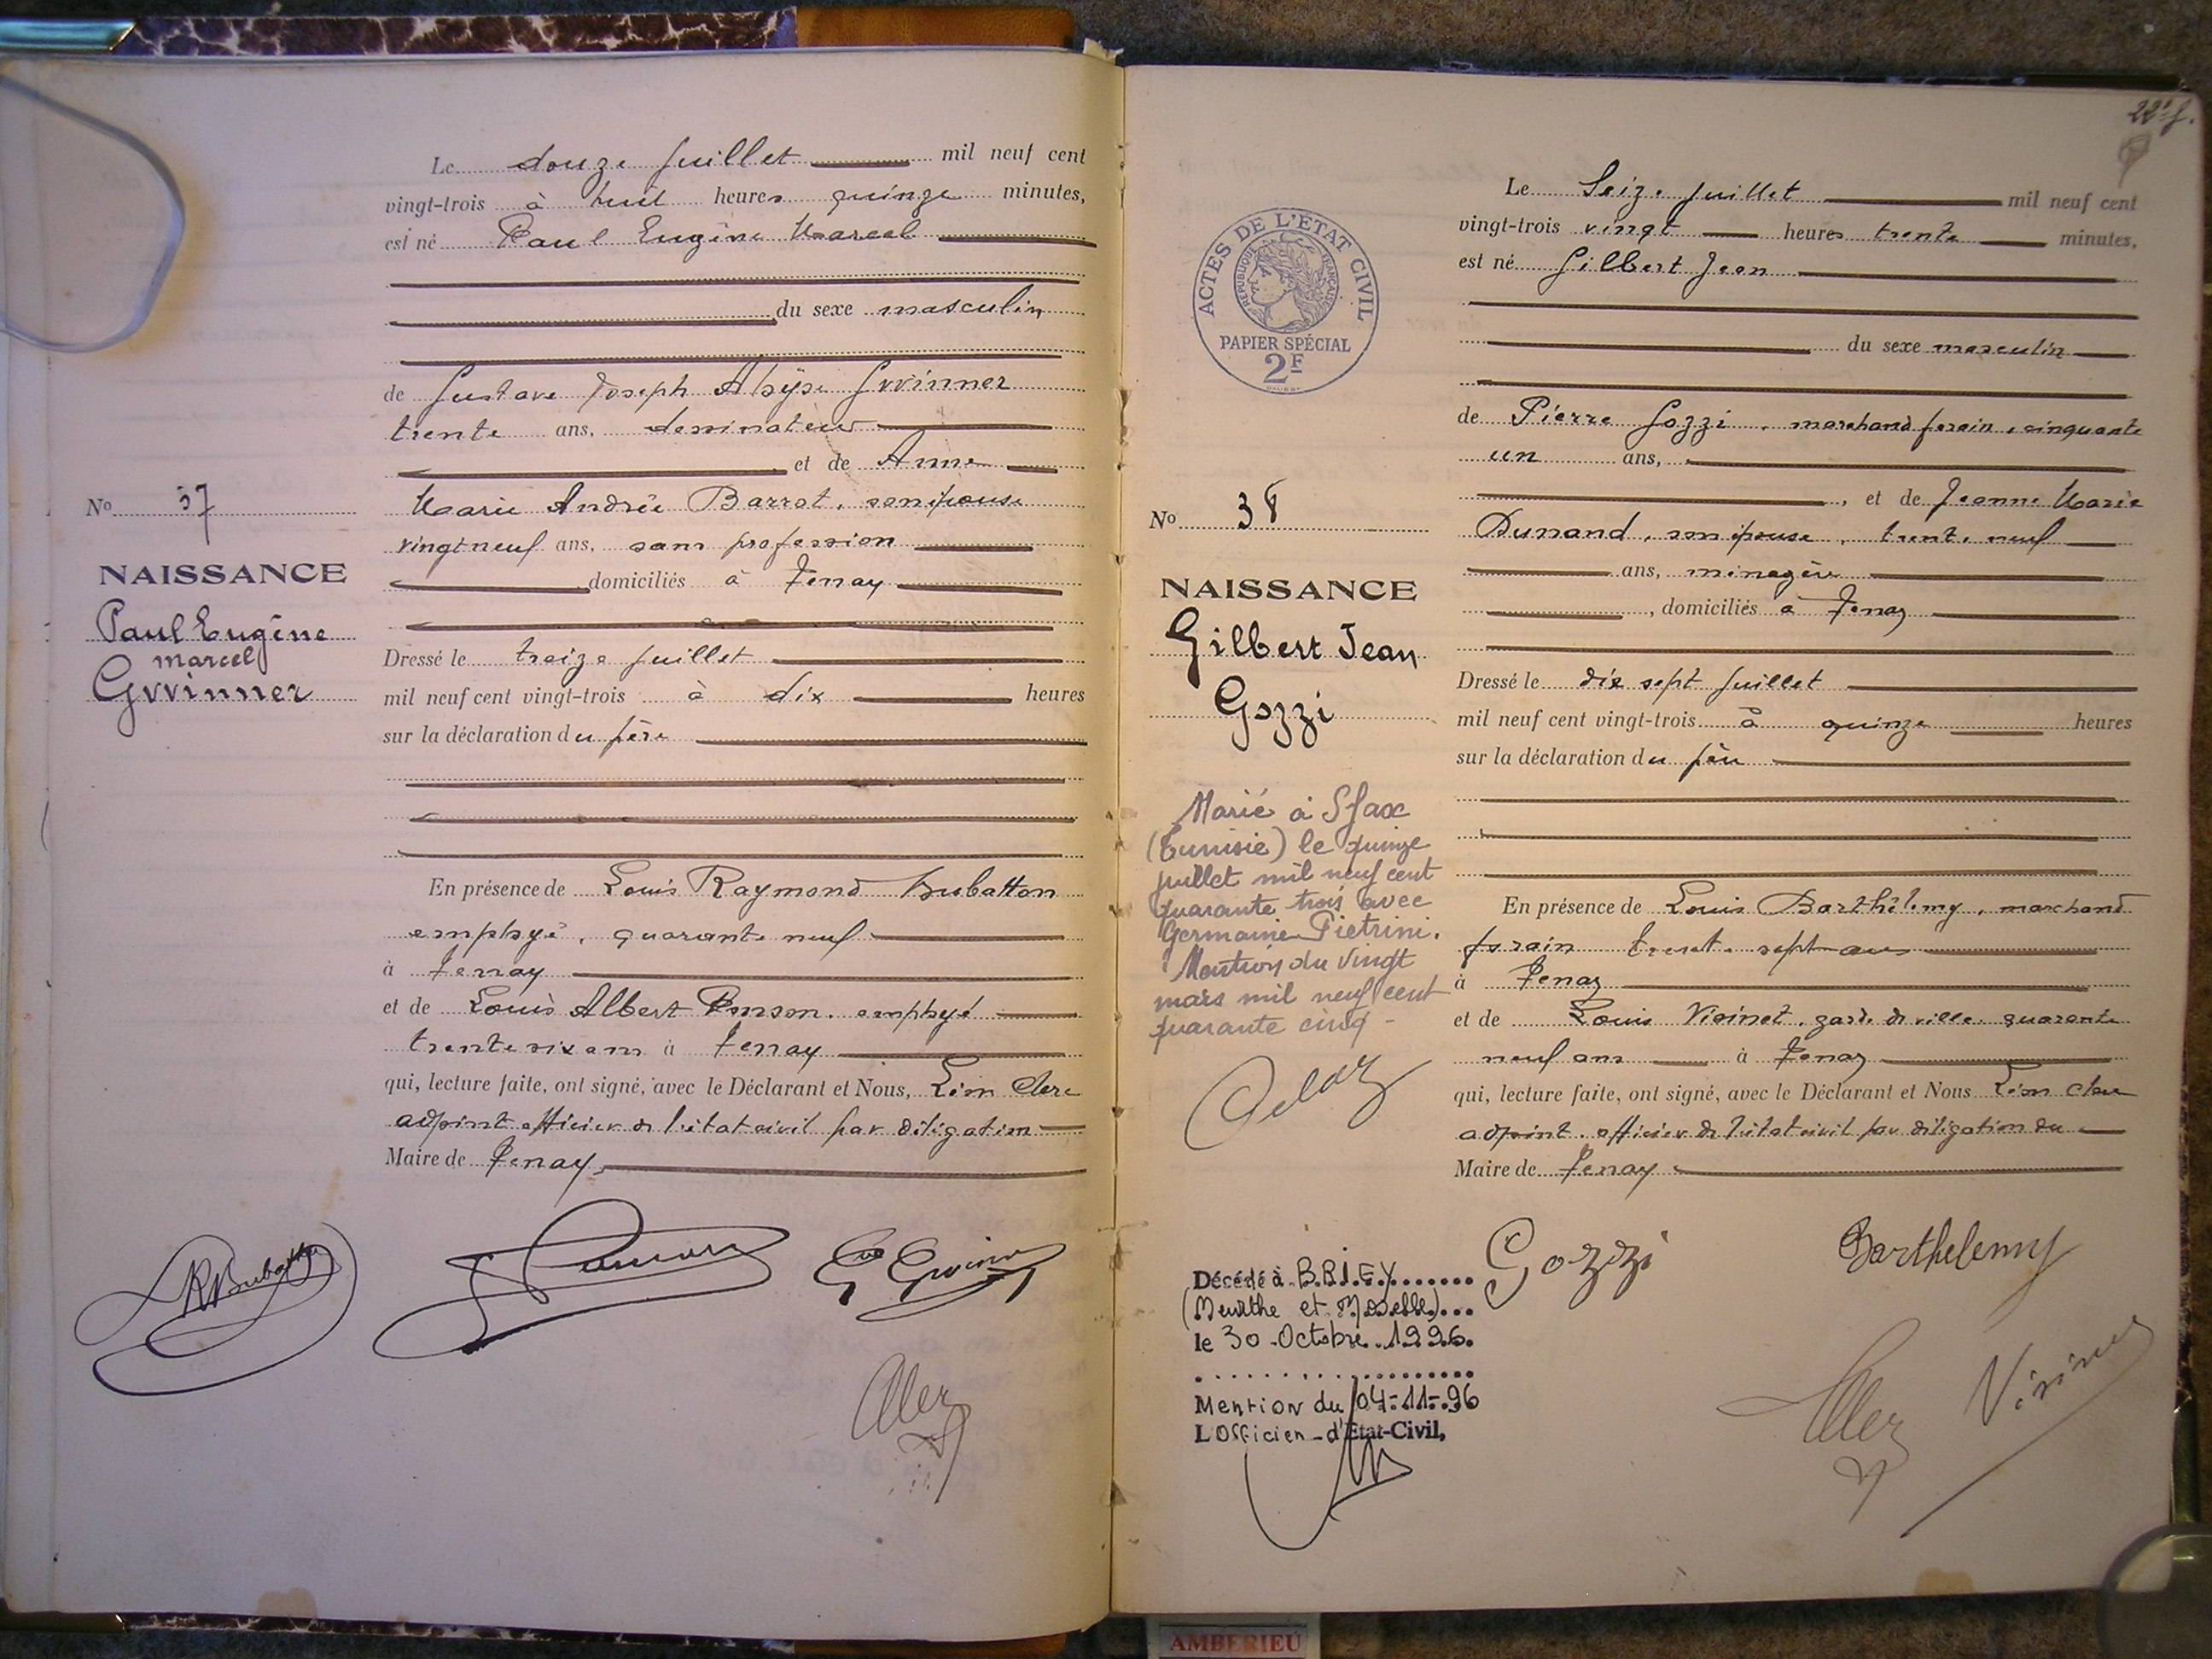 Le douze Juillet mil neuf cent
vingt-trois à huit heures quinze minutes,
est né Paul Eugène Marcel
du sexe masculin
de Gustave Joseph Aloÿse Gwinner
trente ans, dessinateur
et de Anne
Marie Andrée Barrot, son épouse
vingt neuf ans, sans profession
domiciliés à Tenay
Dressé le treize Juillet
mil neuf cent vingt-trois à dix heures
sur la déclaration du père
En présence de Louis Raymond Bubatton
employé, quarante neuf
à Tenay
et de Louis Albert employé
trente six ans à Tenay
qui, lecture faite, ont signé, avec le Déclarant et Nous, Léon Clerc
adjoint officier de l'état civil par délégation
Maire de Tenay
No 37
NAISSANCE
Paul Eugène
Marcel
Gwinner
22e f.
ACTES DE L'ETAT CIVIL
REPUBLIQUE FRANÇAISE
PAPIER SPÉCIAL
2F
Le Seize Juillet mil neuf cent
vingt-trois vingt heures trente minutes,
est né Gilbert Jean
du sexe masculin
de Pierre Gozzi, marchand forain, cinquante
un ans,
, et de Jeanne Marie
Dunand, son épouse, trente neuf
ans, ménagère
, domiciliés à Tenay
Dressé le dix sept Juillet
mil neuf cent vingt-trois à quinze heures
sur la déclaration du père
En présence de Louis Barthélemy, marchand
forain trente sept ans
à Tenay
et de Louis Voinet, garde de ville quarante
neuf ans à Tenay
qui, lecture faite, ont signé, avec le Déclarant et Nous Léon Clerc
adjoint, officier de l'état civil par délégation du
Maire de Tenay
No 38
NAISSANCE
Gilbert Jean
Gozzi
Marié à Sfax
(Tunisie) le quinze
juillet mil neuf cent
quarante trois avec
Germaine Pietrini.
Mention du vingt
mars mil neuf cent
quarante cinq -
Décédé à BRIEY
(Meurthe et Moselle)
le 30 Octobre 1996.
Mention du 04-11-96
L'Officier d'Etat-Civil,
RBubatton
Gve Gwinner
Gozzi
Barthelemy
AMBERIEU